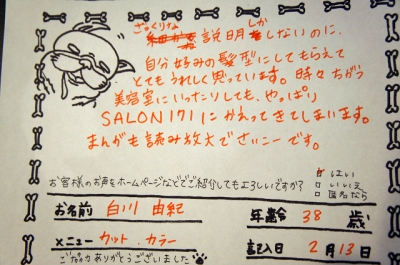 ざっくりな
説明しかしないのに、
自分好みの髪型にしてもらえて
とてもうれしく思っています。時々ちがう
美容室にいったりしても、やっぱり
SALON 171 にかえってきてしまいます。
まんがも読み放大でさいこーです。
お客様のお声をホームページなどでご紹介してもよろしいですか？
はい
いいえ
匿名なら
お名前 白川 由紀 年齢 38 歳
メニュー カット、カラー 記入日 2月13日
ご協力ありがとうございました